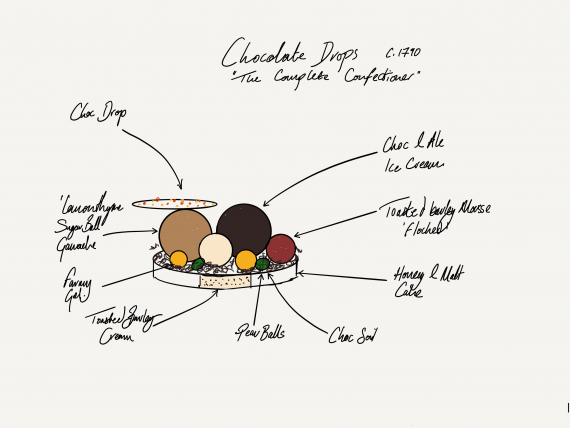 Chocolate Drops c.1790
"The Complete Confectioner"
Choc Drop
Choc & Ale
Ice Cream
'Lemonthyme
Sugar Ball'
Ganache
Toasted barley Mousse
'Flocked'
Honey & Malt
Cake
Gel
Toasted Barley
Cream
Pear Balls
Choc Soil